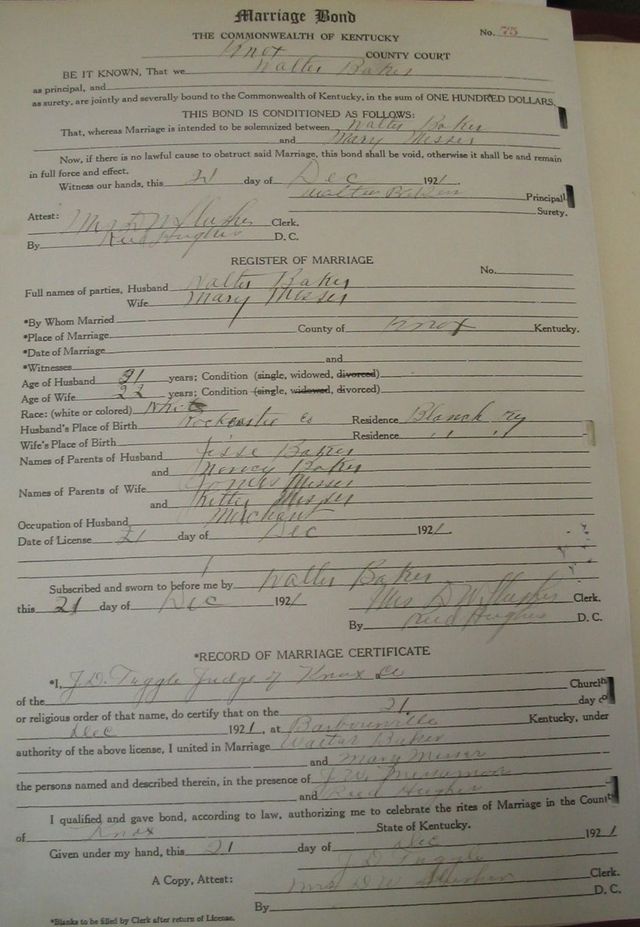 Marriage Bond
THE COMMONWEALTH OF KENTUCKY No. 75
Knox COUNTY COURT
BE IT KNOWN, That we Walter Baker
as principal, and
as surety, are jointly and severally bound to the Commonwealth of Kentucky, in the sum of ONE HUNDRED DOLLARS,
THIS BOND IS CONDITIONED AS FOLLOWS:
That, whereas Marriage is intended to be solemnized between Walter Baker
and Mary Messer
Now, if there is no lawful cause to obstruct said Marriage, this bond shall be void, otherwise it shall be and remain
in full force and effect.
Witness our hands, this 21 day of Dec 1921
Walter Baker Principal
Surety.
Attest: Mrs D W Slusher Clerk.
By Reed Hughes D. C.
REGISTER OF MARRIAGE
No.
Full names of parties, Husband Walter Baker
Wife Mary Messer
*By Whom Married
*Place of Marriage County of Knox Kentucky.
*Date of Marriage
*Witnesses and
Age of Husband 21 years; Condition (single, widowed, divorced)
Age of Wife 22 years; Condition (single, widowed, divorced)
Race: (white or colored) White
Husband's Place of Birth Rockcastle Co Residence Blanch Ky
Wife's Place of Birth Residence " "
Names of Parents of Husband Jesse Baker
and Nancy Baker
Names of Parents of Wife Messer
and Messer
Occupation of Husband Merchant
Date of License 21 day of Dec 1921
Subscribed and sworn to before me by Walter Baker
this 21 day of Dec 1921 Mrs D W Slusher Clerk.
By Reed Hughes D. C.
*RECORD OF MARRIAGE CERTIFICATE
*I, J.D. Tuggle Judge of Knox Co
of the Church
or religious order of that name, do certify that on the 21 day of
Dec 1921, at Barbourville Kentucky, under
authority of the above license, I united in Marriage Walter Baker
and Mary Messer
the persons named and described therein, in the presence of J.W.
and Reed Hughes
I qualified and gave bond, according to law, authorizing me to celebrate the rites of Marriage in the County
of Knox State of Kentucky.
Given under my hand, this 21 day of Dec 1921
J D Tuggle
A Copy, Attest: Mrs D W Slusher Clerk.
By D. C.
*Blanks to be filled by Clerk after return of License.